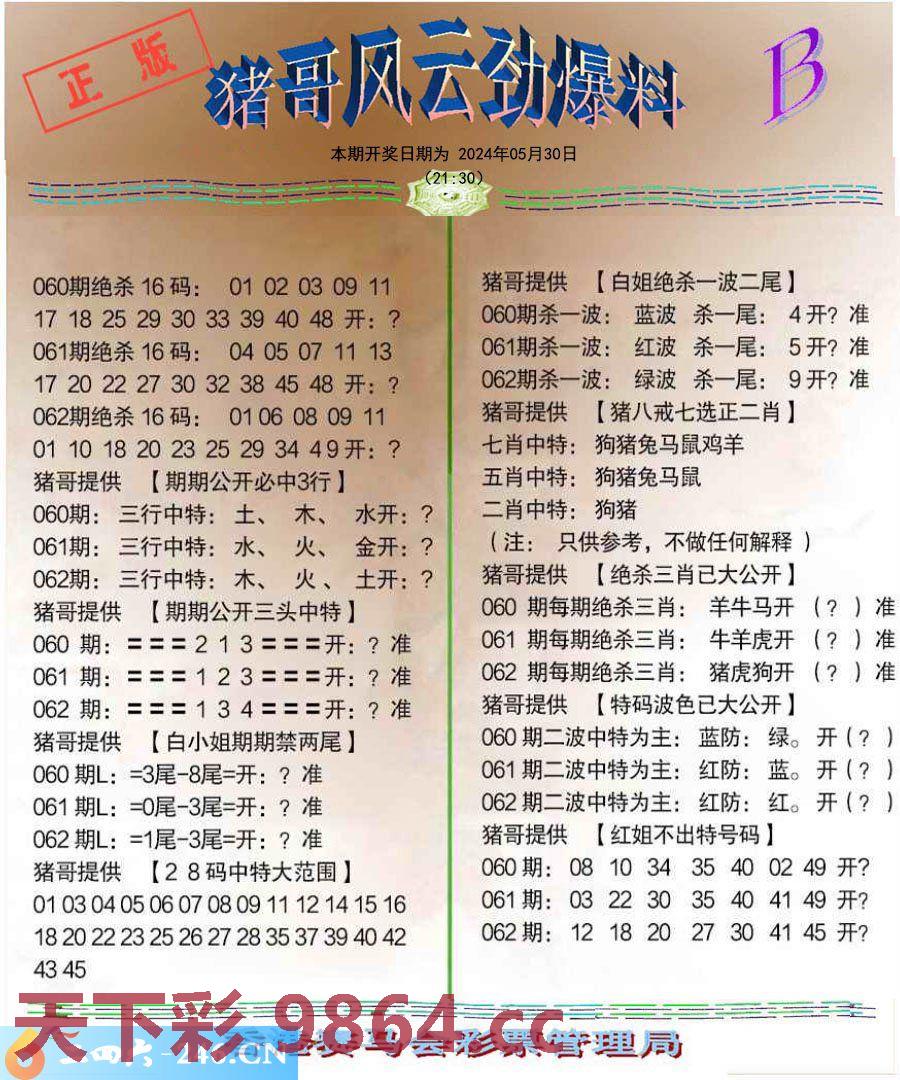 正版
猪哥风云劲爆料
B
本期开奖日期为 2024年05月30日
(21:30)
060期绝杀16码： 01 02 03 09 11
17 18 25 29 30 33 39 40 48 开：?
061期绝杀16码： 04 05 07 11 13
17 20 22 27 30 32 38 45 48 开：?
062期绝杀16码： 01 06 08 09 11
01 10 18 20 23 25 29 34 49 开：?
猪哥提供 【期期公开必中3行】
060期：三行中特：土、 木、 水开：?
061期：三行中特：水、 火、 金开：?
062期：三行中特：木、 火、土开：?
猪哥提供 【期期公开三头中特】
060 期：===213===开：? 准
061 期：===123===开：? 准
062 期：===134===开：? 准
猪哥提供 【白小姐期期禁两尾】
060期L：=3尾-8尾=开：? 准
061期L：=0尾-3尾=开：? 准
062期L：=1尾-3尾=开：? 准
猪哥提供 【28码中特大范围】
01 03 04 05 06 07 08 09 11 12 14 15 16
18 20 22 23 25 26 27 28 35 37 39 40 42
43 45
猪哥提供 【白姐绝杀一波二尾】
060期杀一波： 蓝波 杀一尾： 4开? 准
061期杀一波： 红波 杀一尾： 5开? 准
062期杀一波： 绿波 杀一尾： 9开? 准
猪哥提供 【猪八戒七选正二肖】
七肖中特： 狗猪兔马鼠鸡羊
五肖中特： 狗猪兔马鼠
二肖中特： 狗猪
（注： 只供参考，不做任何解释 ）
猪哥提供 【绝杀三肖已大公开】
060 期每期绝杀三肖： 羊牛马开 （? ）准
061 期每期绝杀三肖： 牛羊虎开 （? ）准
062 期每期绝杀三肖： 猪虎狗开 （? ）准
猪哥提供 【特码波色已大公开】
060期二波中特为主：蓝防：绿。开(? )
061期二波中特为主：红防：蓝。开(? )
062期二波中特为主：红防：红。开(? )
猪哥提供 【红姐不出特号码】
060期： 08 10 34 35 40 02 49 开?
061期： 03 22 30 35 40 41 49 开?
062期： 12 18 20 27 30 41 45 开?
天下彩 9864.cc
二四六-246.CN
赛马会彩票管理局